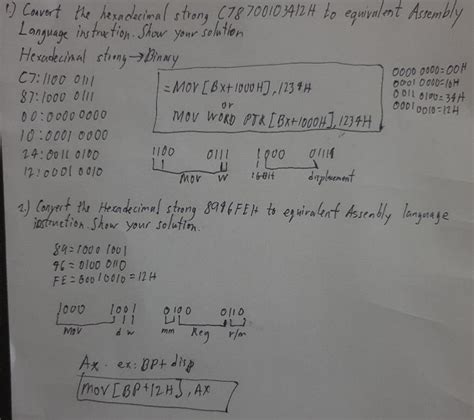 1.) Convert the hexadecimal strong C78700103412H to equivalent Assembly
Language instruction. Show your solution
Hexadecimal strong → Binary
C7: 1100 0111
87: 1000 0111
00: 0000 0000
10: 0001 0000
24: 0011 0100
12: 0001 0010
= MOV [BX+1000H], 1234H
or
MOV WORD PTR [BX+1000H], 1234H
0000 0000 = 00H
0001 0000 = 10H
0011 0100 = 34H
0001 0010 = 12H
1100 0111 1000 0111
MOV W 16BIT displacement
2.) Convert the Hexadecimal strong 8946FEH to equivalent Assembly language
instruction. Show your solution.
89 = 1000 1001
46 = 0100 0110
FE = 0001 0010 = 12H
1000 1001 0100 0110
MOV d w mm Reg r/m
Ax. ex: BP + disp
MOV [BP+12H], AX